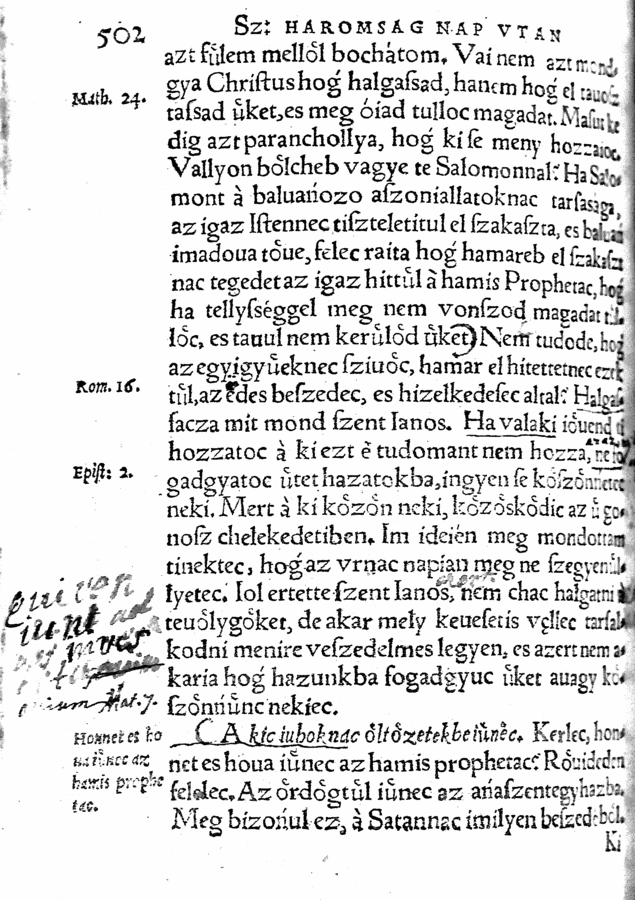 502
Sz: HAROMSAG NAP VTAN
azt fu̇lem mellȯl bochátom. Vai nem azt mond
gya Chriſtus hoǵ halgaſsad, hanem hoǵ el
Math. 24.
taſsad u̇ket, es meg óiad tulloc magadat.
dig azt paranchollya, hoǵ ki ſe meny hozzaioc.
Vallyon bȯlcheb vagye te Salomonnal? Ha Salo⸗
mont à baluańozo aſzoniallatoknac tarſasaga,
az igaz Iſtennec tiſzteletitul el ſzakaſzta, es baluań
imadoua tȯue, felec raita hoǵ hamareb el ſzakaſzt
nac tegedet az igaz hittu̇l à hamis Prophetac, hoǵ
ha tellyſséggel meg nem vonſzod magadat tu̇l⸗
lȯc, es tauul nem keru̇lȯd u̇ket) Nem tudode, hoǵ
az egyigyu̇eknec ſziuȯc, hamar el hitettetnec ezek
Rom. 16.
tu̇l, az édes beſzedec, es hizelkedeſec altal? Halgaſ⸗
ſacza mit mond ſzent Ianos. Ha valaki iȯuend ti
hozzatoc à ki ezt ė tudomant nem hozza, ne fo⸗
Epiſt: 2.
gadgyatoc u̇tet hazatokba, ingyen ſe kȯſzȯnnetec
neki. Mert à ki kȯzȯn neki, kȯzȯskȯdic az u̇ go⸗
noſz chelekedetiben. Im ideién meg mondottam
tinektec, hoǵ az vrnac napian meg ne ſzegyenu̇l⸗
lyetec. Iol ertette ſzent Ianos, nem chac halgatni à
teuȯlygȯket, de akar mely keueſetis vęllec tarſal⸗
kodni menire veſzedelmes legyen, es azert nem a⸗
karia hoǵ hazunkba fogadgyuc u̇ket auagy kȯ⸗
Mat. 7.
ſzȯnńu̇nc nekiec.
A kic iuboknac ȯltȯzetekbe iu̇nėc. Kerlec, hon⸗
Honnet es ho
ua iu̇nec az
hamis prophe
tac.
net es houa iu̇nec az hamis prophetac? Rȯuideden
felelec. Az ȯrdȯgtu̇l iu̇nec az ańaſzentegyhazba.
Meg bizońul ez, à Satannac imilyen beſzedebȯl.
Ki